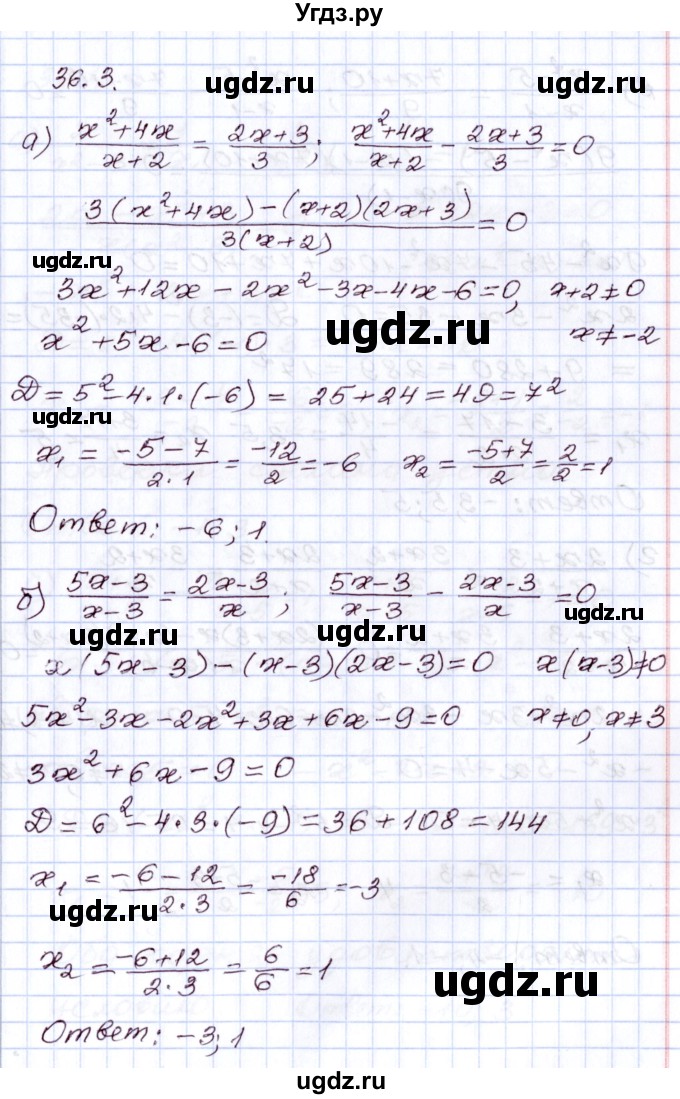 Угдз.ру
36.3.
ugdz.ru ugdz.ru
а) (x²+4x)/(x+2) = (2x+3)/3; (x²+4x)/(x+2) - (2x+3)/3 = 0
(3(x²+4x)-(x+2)(2x+3))/(3(x+2)) = 0
ugdz.ru
3x²+12x-2x²-3x-4x-6=0, x+2≠0
ugdz.ru
x²+5x-6=0 x≠-2
Д=5²-4·1·(-6)= 25+24=49=7²
ugdz.ru
x₁ = (-5-7)/(2·1) = -12/2 = -6 x₂ = (-5+7)/2 = 2/2 = 1
Ответ: -6; 1.
ugdz.ru
б) (5x-3)/(x-3) = (2x-3)/x; (5x-3)/(x-3) - (2x-3)/x = 0
ugdz.ru ugdz.ru ugdz.ru
x(5x-3)-(x-3)(2x-3)=0 x(x-3)≠0
5x²-3x-2x²+3x+6x-9=0 x≠0, x≠3
3x²+6x-9=0
Д=6²-4·3·(-9)=36+108=144
x₁ = (-6-12)/(2·3) = -18/6 = -3
ugdz.ru
x₂ = (-6+12)/(2·3) = 6/6 = 1
ugdz.ru
Ответ: -3; 1
ugdz.ru